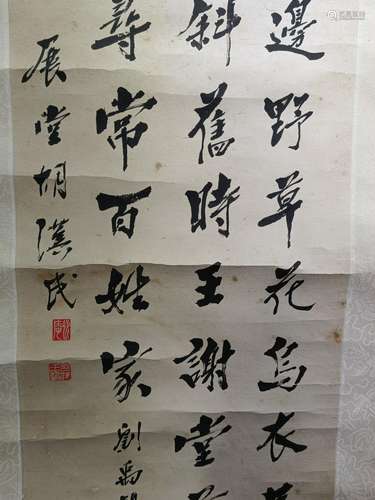 邊野草花烏衣
斜舊時王謝堂
尋常百姓家劉禹
展堂胡漢民